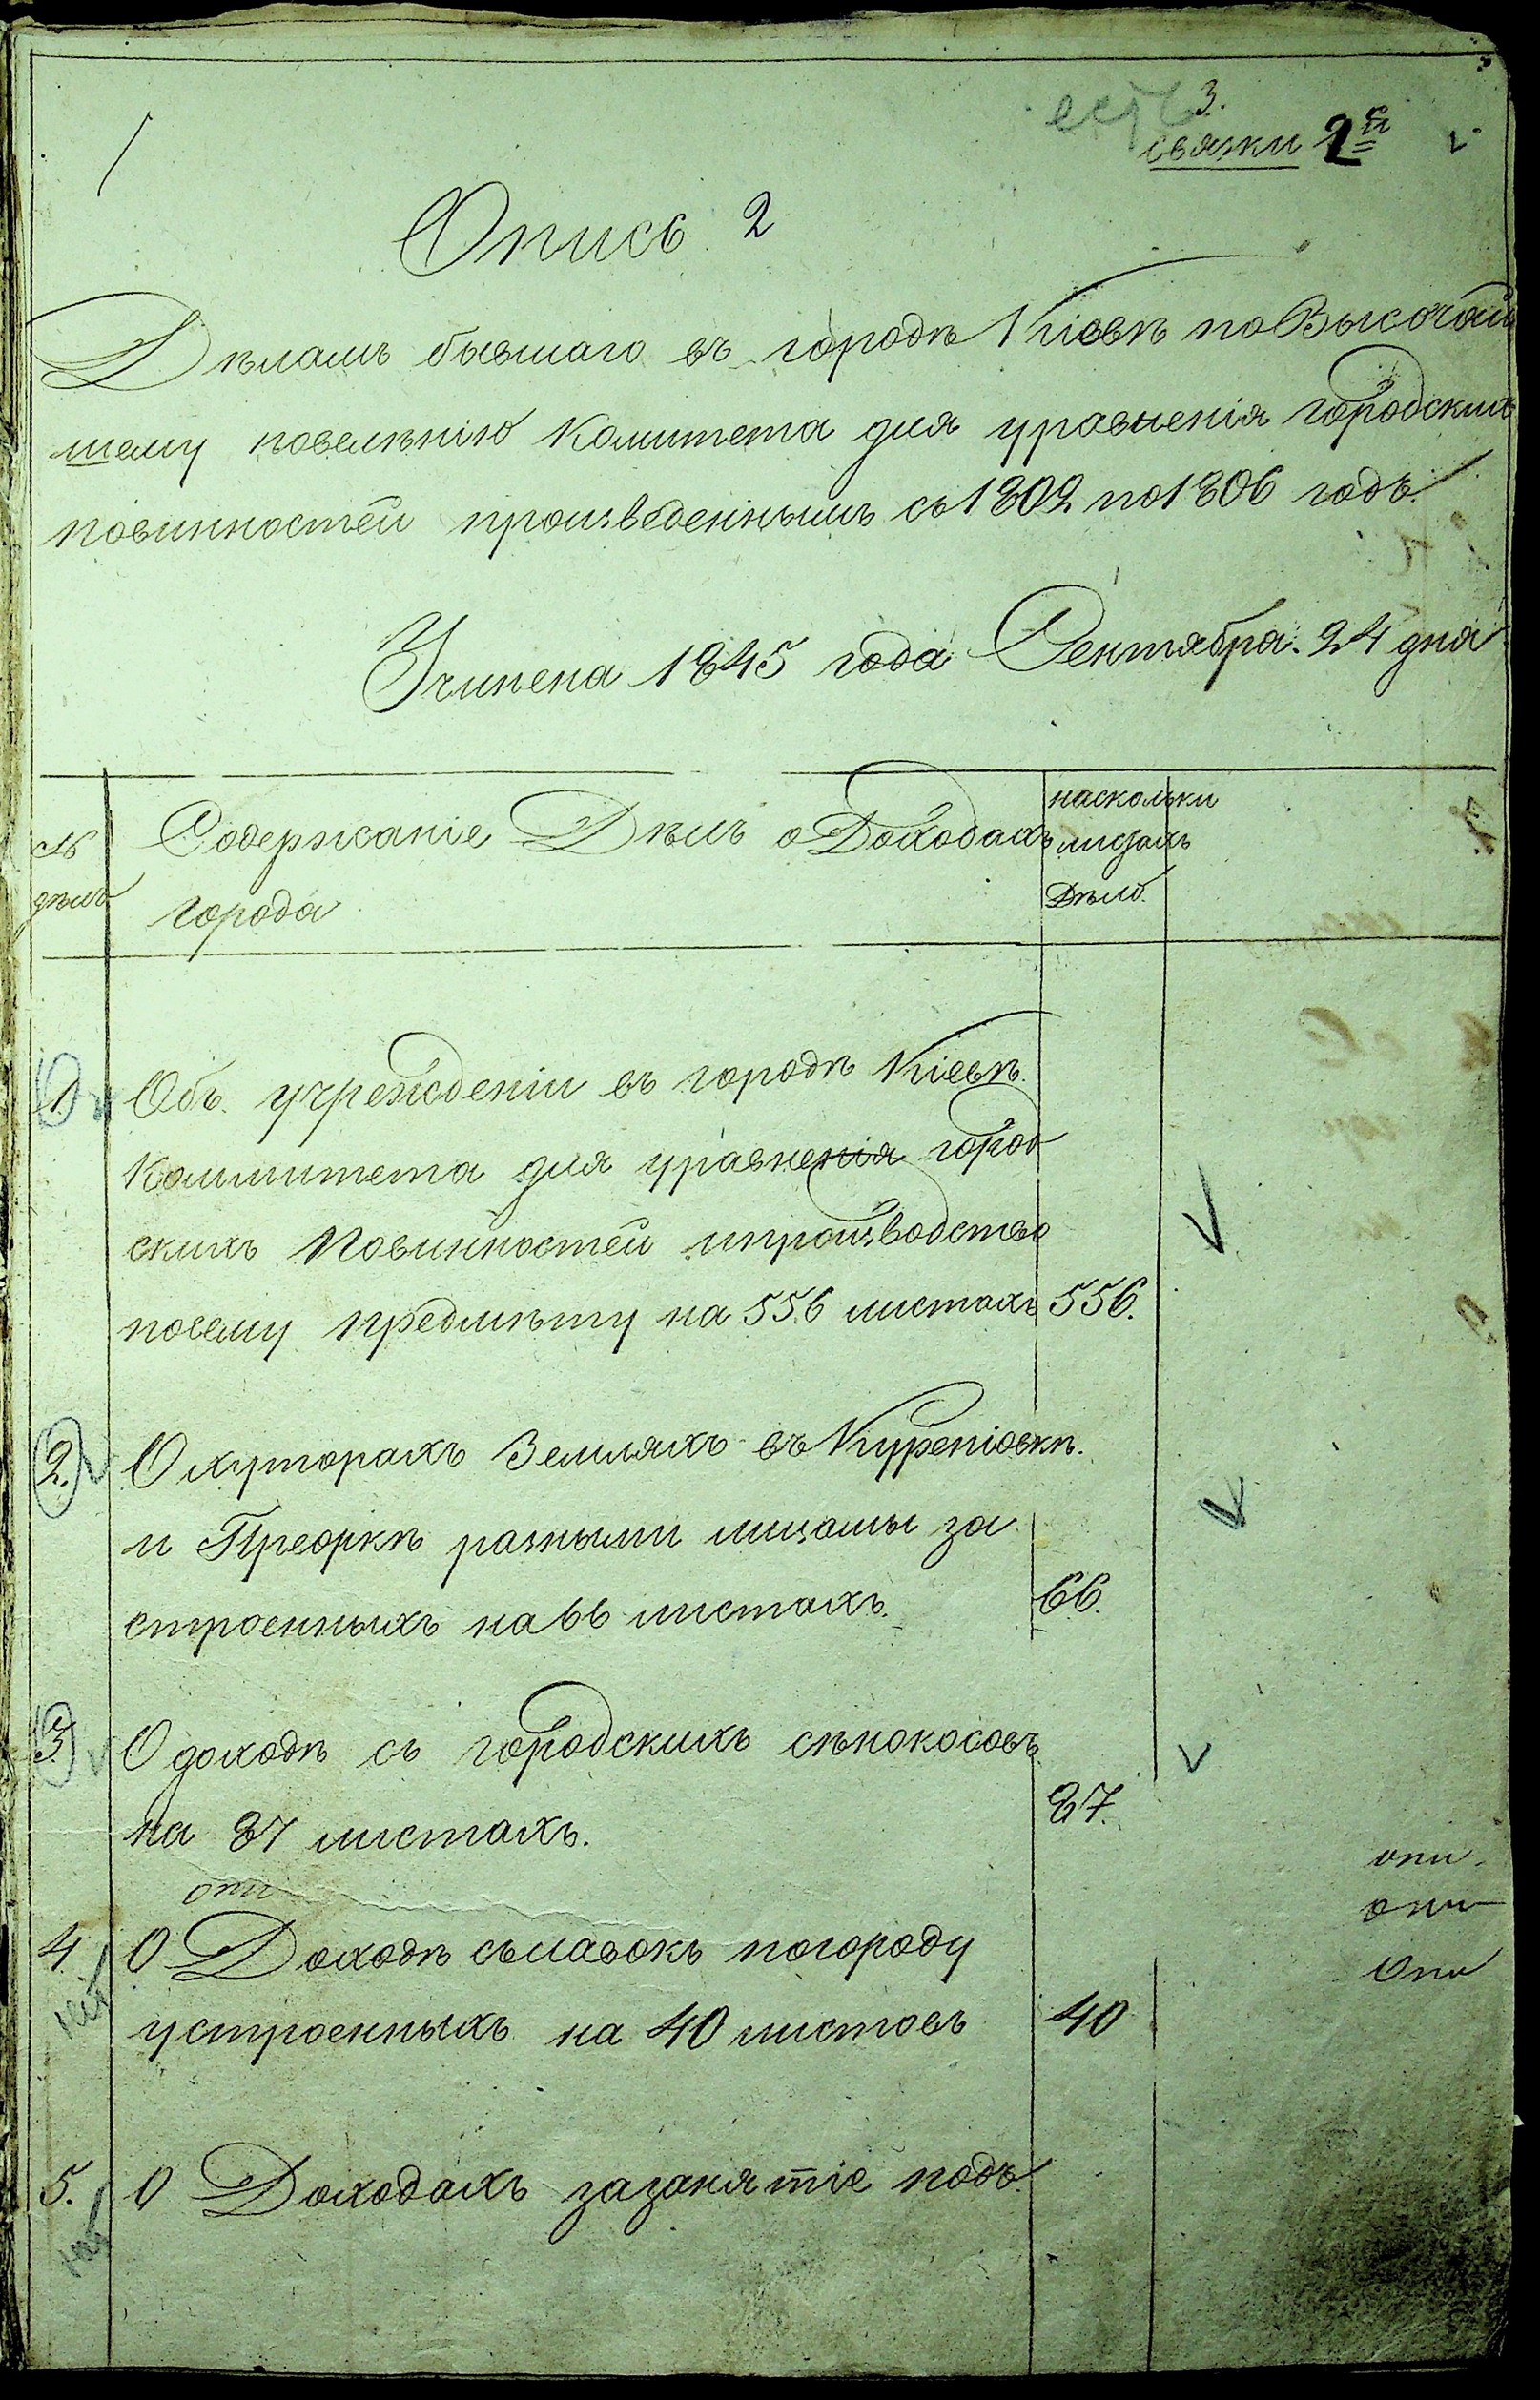 есть 3.
связки 2й
Опись 2
Дѣламъ бывшаго въ городѣ Кіевѣ по Высочай
шему повелѣнію Комитета для уравненія городскихъ
повинностей произведеннымъ съ 1802 по 1806 годъ.
Учинена 1845 года Сентября 24 дня
№ дѣлъ
Содержаніе Дѣлъ о Доходахъ
города
наскольки
лисахъ
Дѣло.
1. Объ учрежденіи въ городѣ Кіевѣ
Коммитета для уравненія город
скихъ Повинностей ипроизводство
посему предмѣту на 556 листахъ 556.
2. О хуторахъ Земляхъ въ Куреніовкѣ
и Преоркѣ разными лицамы за
строенныхъ на 66 листахъ. 66.
3. О доходѣ съ городскихъ сѣнокосовъ
на 87 листахъ. 87.
опи
опи
опи
опи
4. О Доходѣ сълавокъ погороду
устроенныхъ на 40 листовъ 40
ніт
5. О Доходахъ зазанятіе подъ
ніт